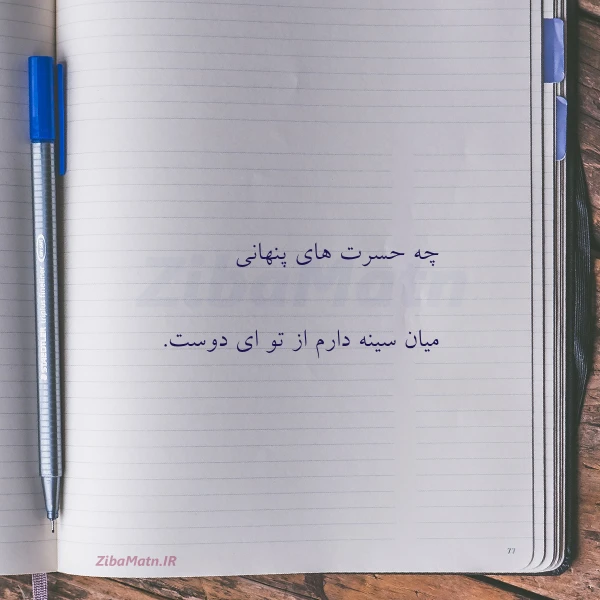 چه حسرت های پنهانی
میان سینه دارم از تو ای دوست.
ZibaMatn
ZibaMatn.IR
77